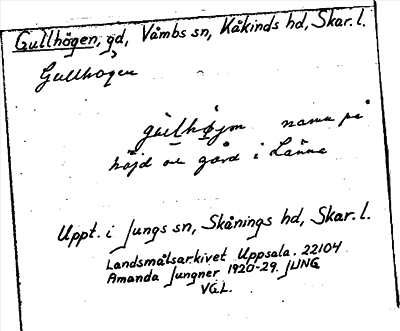 Gullhögen, gd, Våmbs sn, Kåkinds hd, Skar. l.
Gullhögen
namn på
höjd och gård i
Uppt. i Jungs sn, Skånings hd, Skar. l.
Landsmålsarkivet Uppsala. 22104
Amanda Jungner 1920-29. JUNG
VG.L.